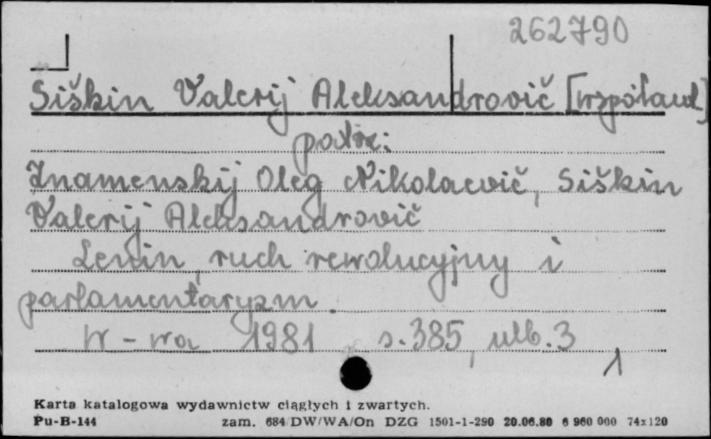 262790
Siškin Valerij Aleksandrovič [współaut.]
patrz:
Znamenskij Oleg Nikolaevič, Siškin
Valerij Aleksandrovič
Lenin, ruch rewolucyjny i
parlamentaryzm.
W-wa 1981 s. 385, ulb. 3
1
Karta katalogowa wydawnictw ciągłych i zwartych.
Pu-B-144 zam. 684/DW/WA/On DZG 1501-1-290 20.06.80 6 960 000 74x120